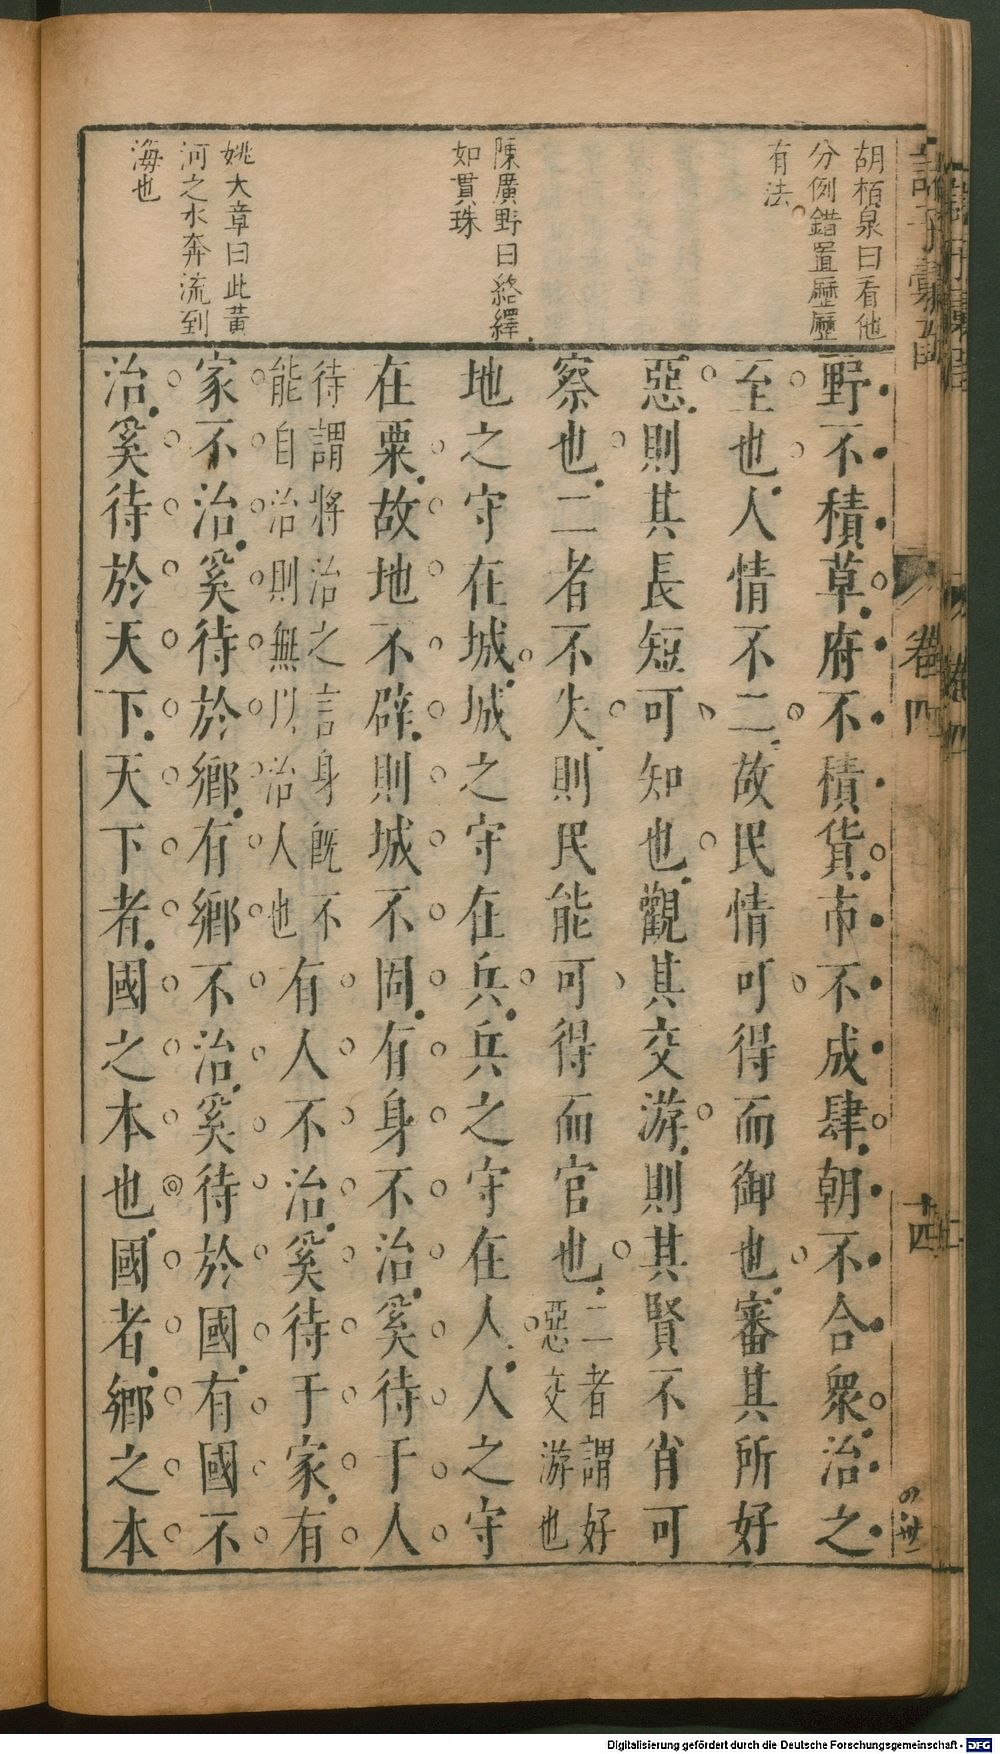 胡栢泉曰看他
分例錯置歷歷
有法
陳廣野曰絡繹
如貫珠
姚大章曰此黃
河之水奔流到
海也
野不積草府不積貨市不成肆朝不合衆治之
至也人情不二故民情可得而御也審其所好
惡則其長短可知也觀其交游則其賢不肖可
察也二者不失則民能可得而官也二者謂好
惡交游也
地之守在城城之守在兵兵之守在人人之守
在粟故地不辟則城不固有身不治奚待于人
待謂將治之言身旣不
能自治則無以治人也
有人不治奚待于家有
家不治奚待於鄉有鄉不治奚待於國有國不
治奚待於天下天下者國之本也國者鄉之本
卷四
十四
Digitalisierung gefördert durch die Deutsche Forschungsgemeinschaft - DFG